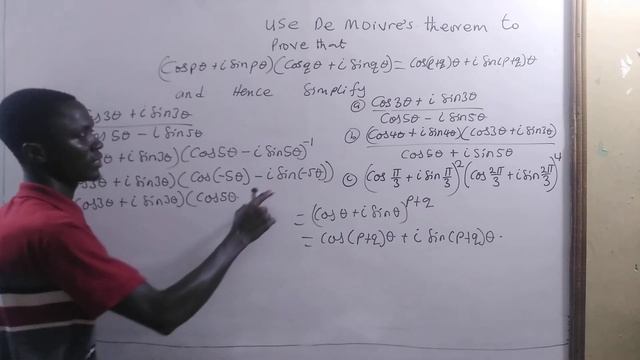 Use De Moivre's theorem to
Prove that
(Cospθ + i Sinpθ)(Cosqθ + i Sinqθ) = Cos(p+q)θ + i Sin(p+q)θ
and Hence Simplify
ⓐ Cos3θ + i Sin3θ
Cos5θ - i Sin5θ
ⓑ (Cos4θ + i Sin4θ)(Cos3θ + i Sin3θ)
Cos5θ + i Sin5θ
ⓒ (Cos π/3 + i Sin π/3)^2 (Cos 2π/3 + i Sin 2π/3)^4
= (Cosθ + i Sinθ)^p+q
= Cos(p+q)θ + i Sin(p+q)θ.
os3θ + i Sin3θ
os5θ - i Sin5θ
θ + i Sin3θ)(Cos5θ - i Sin5θ)^-1
3θ + i Sin3θ)(Cos(-5θ) - i Sin(-5θ))
Cos3θ + i Sin3θ)(Cos5θ